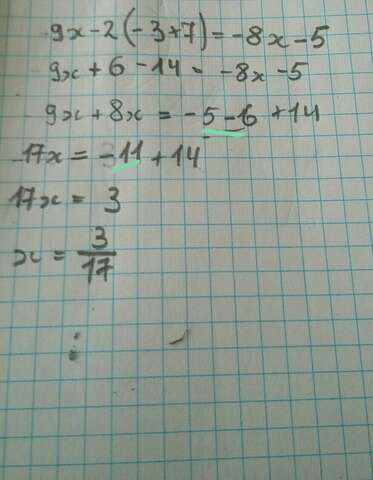 9x-2(-3+7)=-8x-5
9x+6-14=-8x-5
9x+8x=-5-6+14
17x=-11+14
17x=3
x=3/17